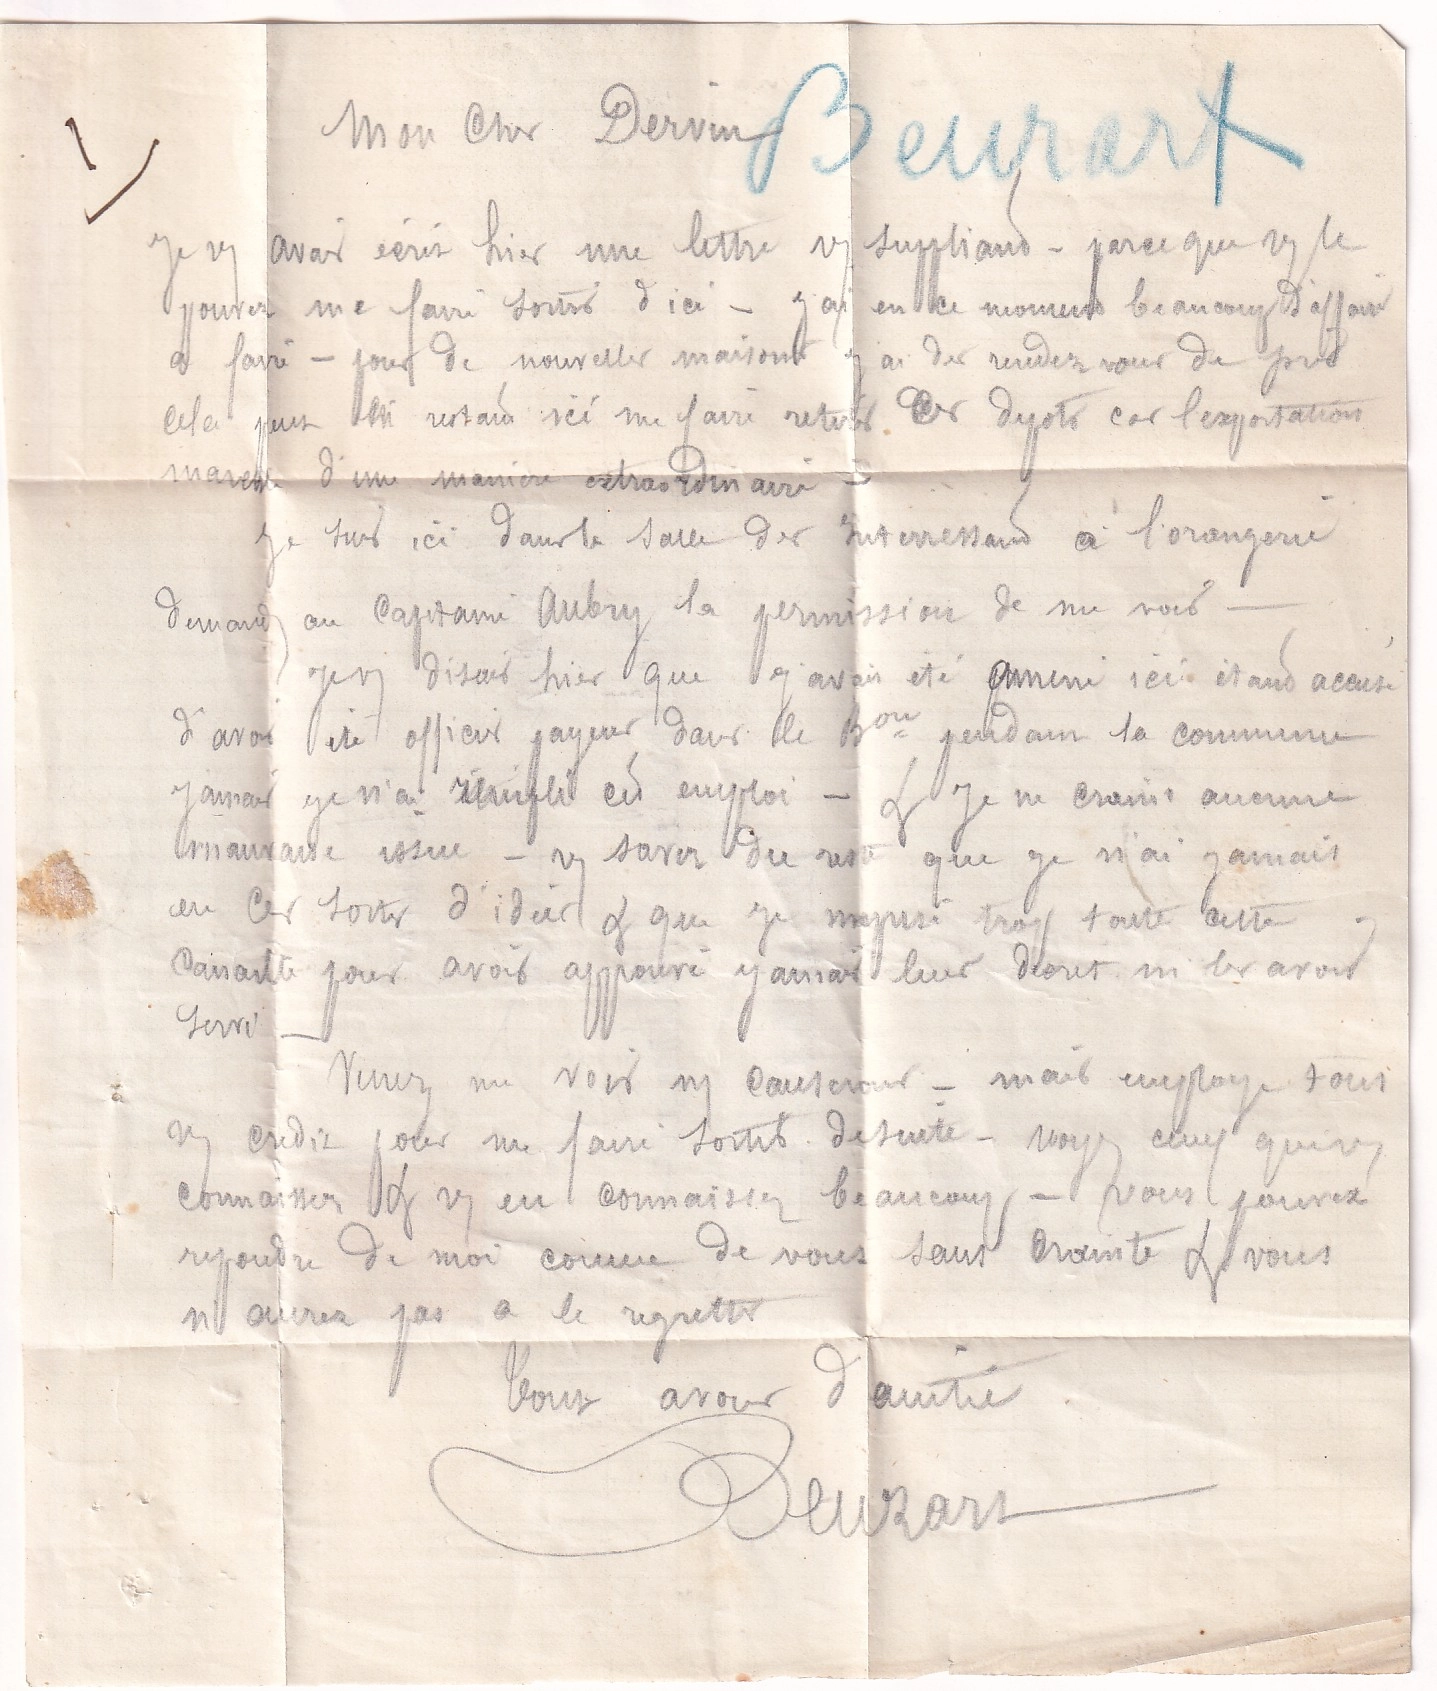 Beurart
Mon Cher Dervin
Je vs avais écris hier une lettre vs suppliant - parce que vs le
pouvez me faire sortir d'ici - j'ai en ce moment beaucoup d'affair
a faire - pour de nouvelles maisons j'ai des rendez vous de pris
cela peut en restant ici me faire retirer Ces depots car l'exportations
marche d'une manière extraordinaire -
Je suis ici dans la Salle des Interressant à l'orangerie
demandez au Capitaine Aubry la permission de me voir -
Je vs disais hier que j'avais été amené ici étant accusé
d'avoir été officier payeur dans le Bon pendant la commune
jamais je n'ai rempli cet emploi - & Je ne crains aucune
mauvaise issue - vs savez du reste que je n'ai jamais
eu Ces sortes d'idées & que je meprise trop toute cette
Canaille pour avoir appouvé jamais leur decret ni les avoir
servi -
Venez me voir ns causerons - mais employe tous
vs credit pour me faire sortir desuite - voyez ceux que vs
connaissez & vs en connaissez beaucoup - vous pouvez
repondre de moi comme de vous sans crainte & vous
n'aurez pas a le regretter
Tout avous d'amitié
Beurart